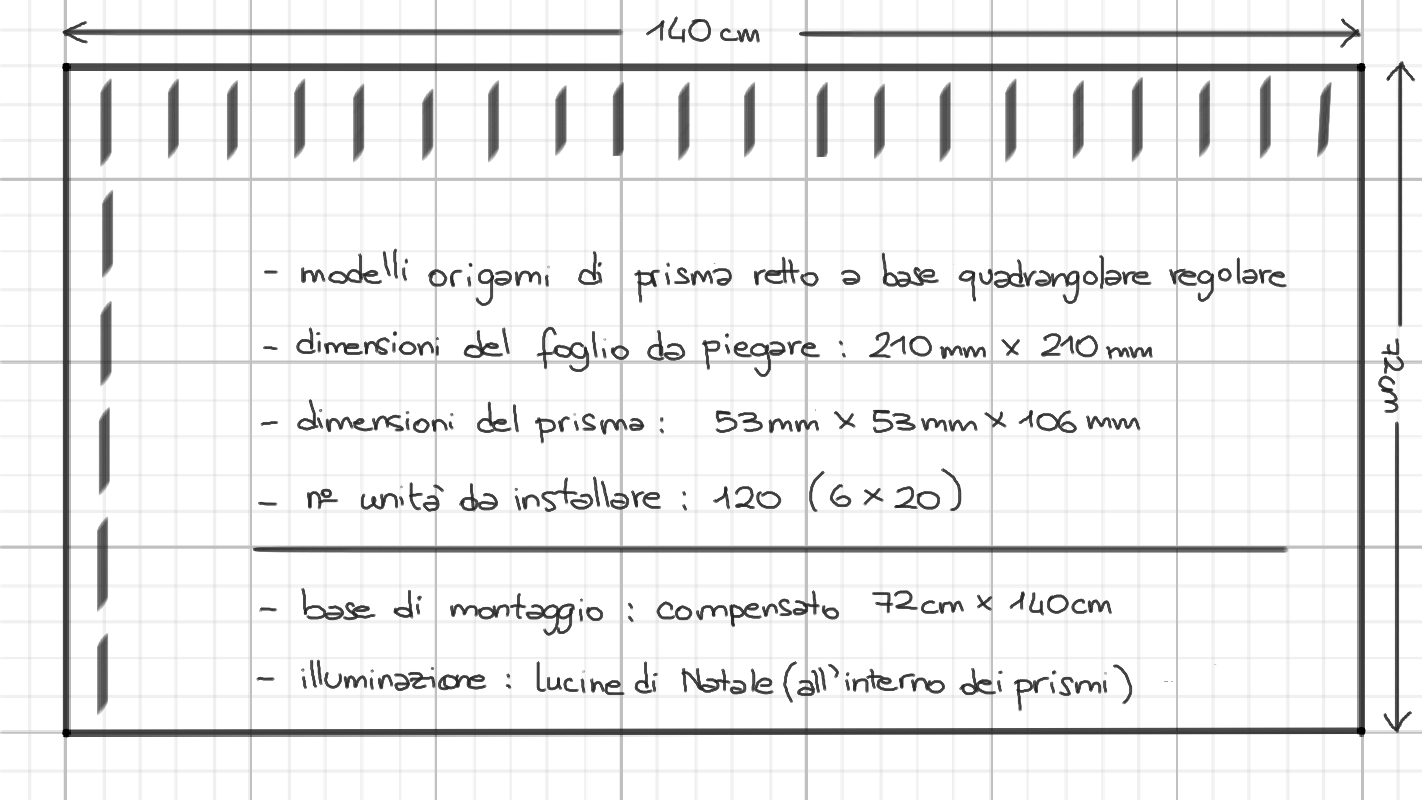 140 cm
- modelli origami di prisma retto a base quadrangolare regolare
- dimensioni del foglio da piegare : 210 mm x 210 mm
- dimensioni del prisma : 53 mm x 53 mm x 106 mm
- nº unità da installare : 120 (6 x 20)
- base di montaggio : compensato 72cm x 140cm
- illuminazione : lucine di Natale (all'interno dei prismi)
72cm